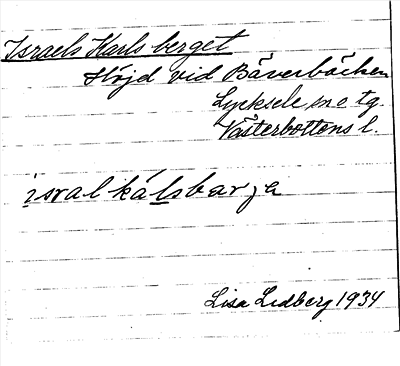 Israels Karls berget
Höjd vid Bäverbäcken
Lycksele sn o. tg.
Västerbottens l.
isral kálsbarja
Lisa Lidberg 1934